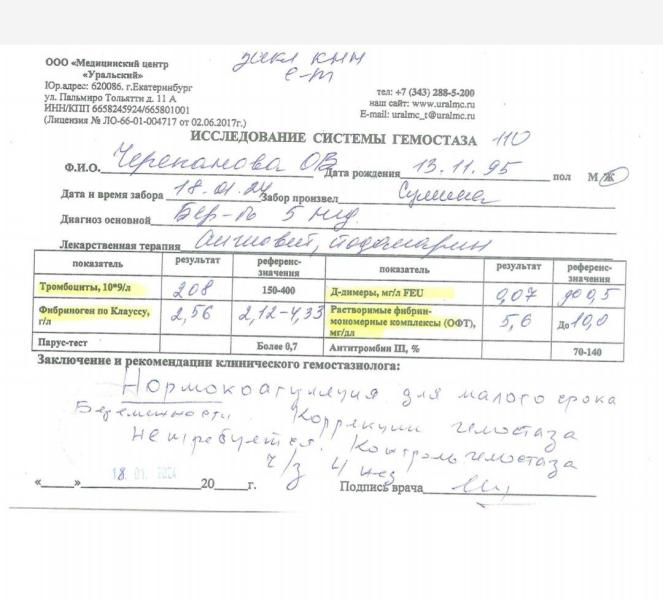 закл КНН
с-т
ООО «Медицинский центр
«Уральский»
Юр.адрес: 620086. г.Екатеринбург
ул. Пальмиро Тольятти д. 11 А
ИНН/КПП 6658245924/665801001
(Лицензия № ЛО-66-01-004717 от 02.06.2017г.)
тел: +7 (343) 288-5-200
наш сайт: www.uralmc.ru
E-mail: uralmc_t@uralmc.ru
ИССЛЕДОВАНИЕ СИСТЕМЫ ГЕМОСТАЗА 110
Ф.И.О. Черепанова ОВ Дата рождения 13.11.95 пол М/Ж
Дата и время забора 18.01.24 Забор произвел
Диагноз основной Бер-ть 5 нед.
Лекарственная терапия Ангиовит, йодомарин
показатель результат референс-значения показатель результат референс-значения
Тромбоциты, 10*9/л 208 150-400 Д-димеры, мг/л FEU 0,07 до 0,5
Фибриноген по Клауссу, г/л 2,56 2,12-4,33 Растворимые фибрин-мономерные комплексы (ОФТ), мг/дл 5,6 До 10,0
Парус-тест Более 0,7 Антитромбин III, % 70-140
Заключение и рекомендации клинического гемостазиолога:
Нормокоагуляция для малого срока
Беременности. Коррекции гемостаза
Не требуется. Контроль гемостаза
ч/з 4 нед
18 01. 2024
«___»________20___г. Подпись врача